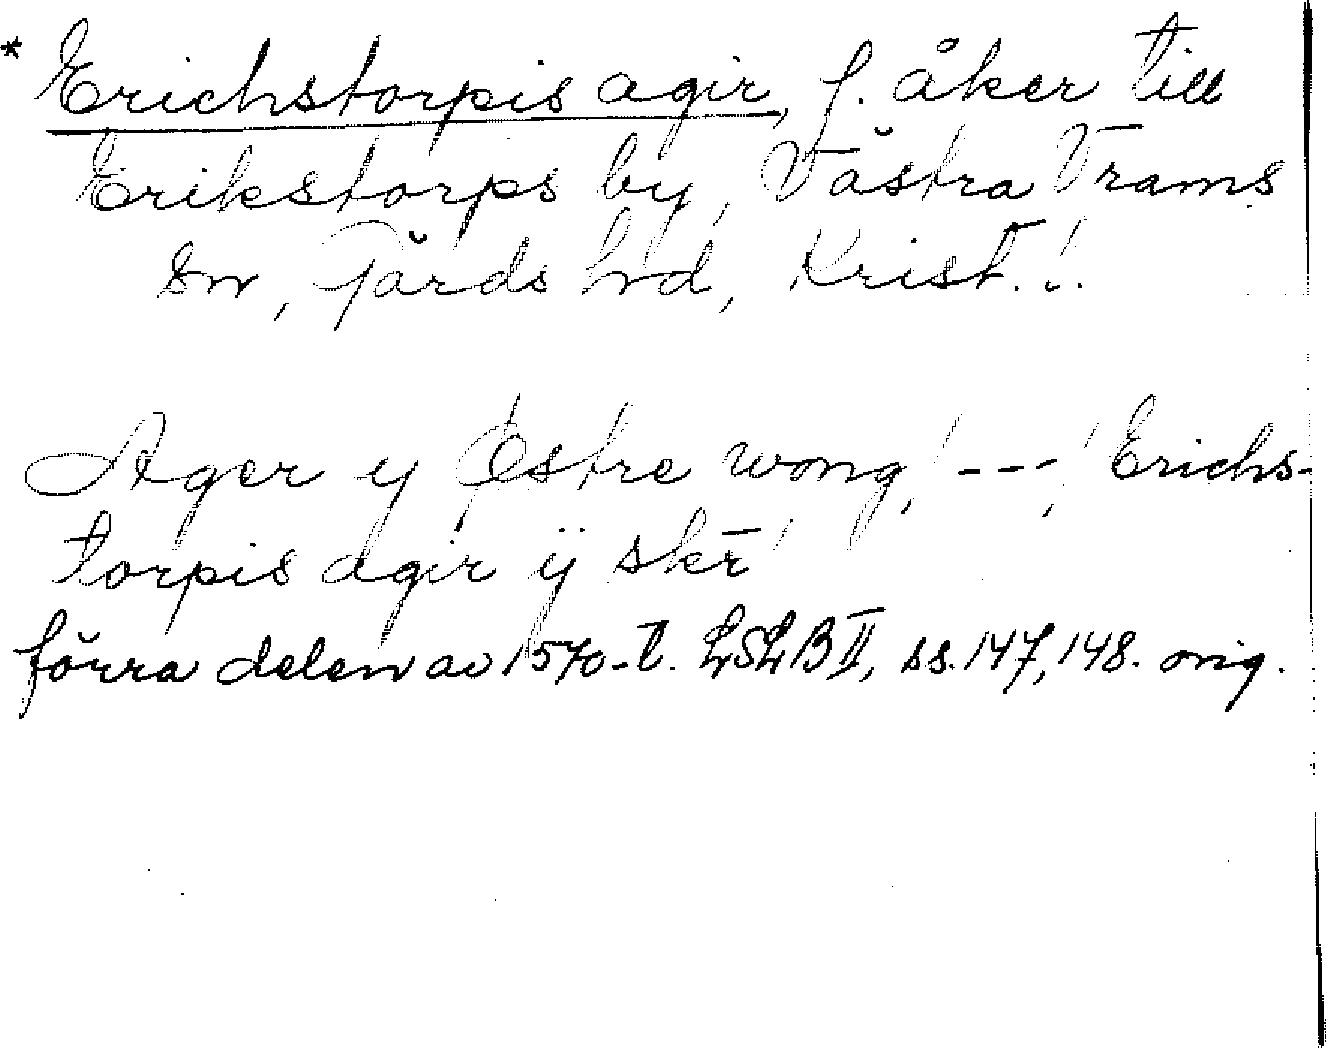 * Erichstorpis agir, f. åker till
Erikstorps by, Västra Vrams
sn, Gärds hd, Krist. l.
Ager y Østre wong, / - - - / Erichs-
torpis agir ÿ skr̄
förra delen av 1570-t. LSLB II, ss. 147, 148. orig.